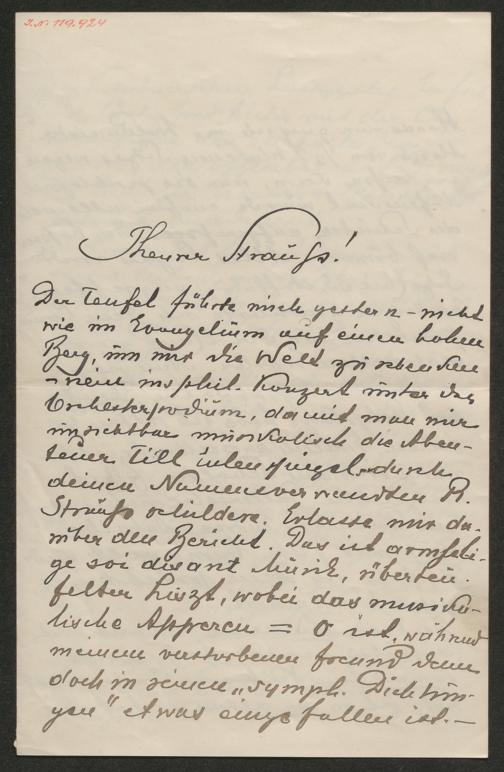 I.N. 119.924
Theurer Strauss!
Der Teufel führte mich gestern – nicht
wie im Evangelium auf einen hohen
Berg, um mir die Welt zu schenken
– nein ins phil. Konzert unter das
Orchesterpodium, damit man mir
unsichtbar musikalisch die Aben-
teuer Till Eulenspiegels durch
deinen Namensverwandten R.
Strauss schildere. Erlasse mir da-
rüber den Bericht. Das ist armseli-
ge soi disant Musik, überteu-
felter Liszt, wobei das musika-
lische Apperçu = 0 ist, während
meinem verstorbenen Freund denn
doch in seinen „symph. Dichtun-
gen" etwas eingefallen ist. –